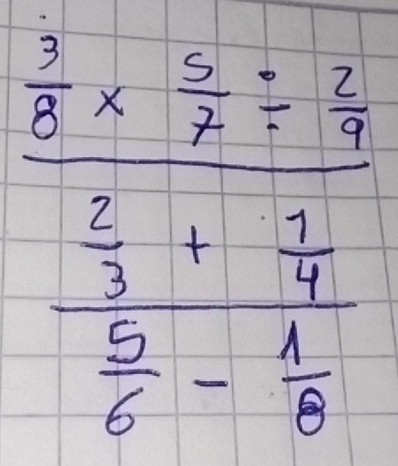 3/8 × 5/7 ÷ 2/9
2/3 + 1/4
5/6 - 1/8